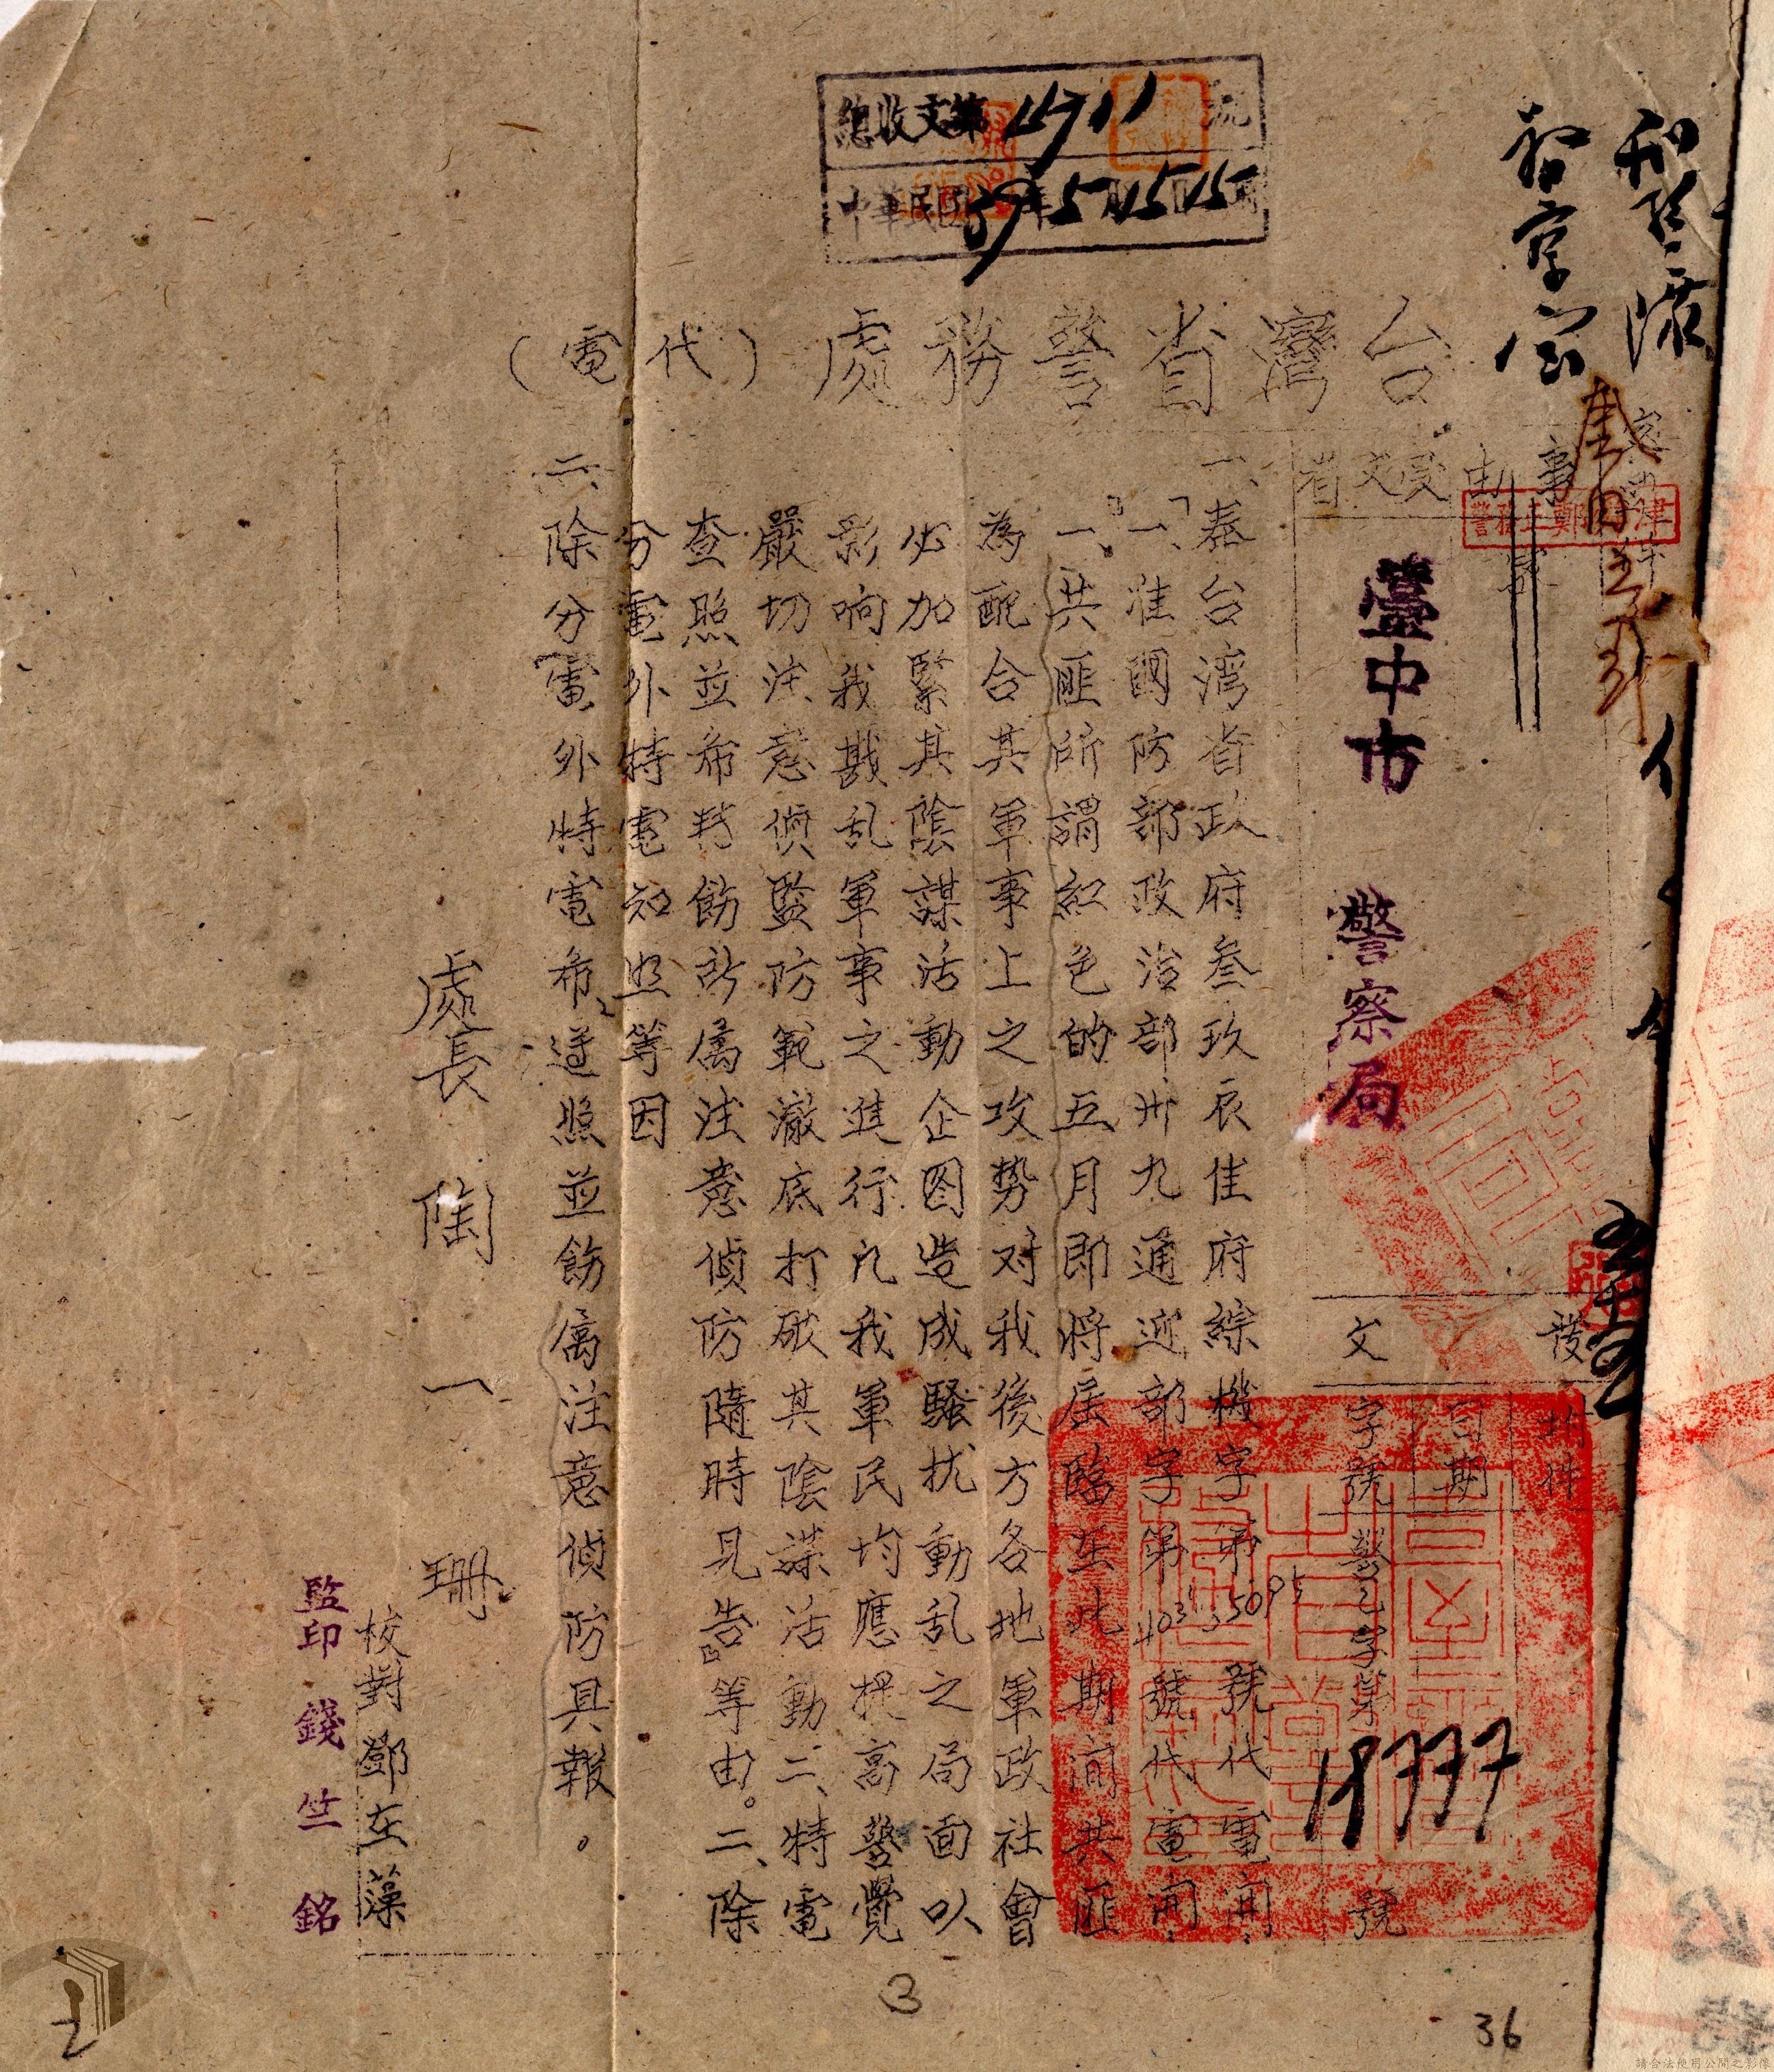 總收文第11911號
中華民國39年5月15日15時
台灣省警務處(代電)
事由
受文者
臺中市警察局
附件
發文
日期
字號
警乙字第19777號
一、奉台湾省政府叁玖辰佳府綜機字第5095號代電開
「一、准國防部政治部卅九通迎部字第403號代電開
「一、共匪所謂紅色的五月即將屆臨在此期間共匪
為配合其軍事上之攻势对我後方各地軍政社會
必加緊其陰謀活動企图造成騷扰動乱之局面以
影响我戡乱軍事之進行凡我軍民均應提高警覺
嚴切注意偵監防範澈底打破其陰謀活動二、特電
查照並希轉飭所属注意偵防隨時見告』等由。二、除
分電外特電知照等因
二、除分電外特電希遵照並飭属注意偵防具報。
處長陶一珊
校對鄧在藻
監印錢竺銘
3
36
請合法使用公開之影像